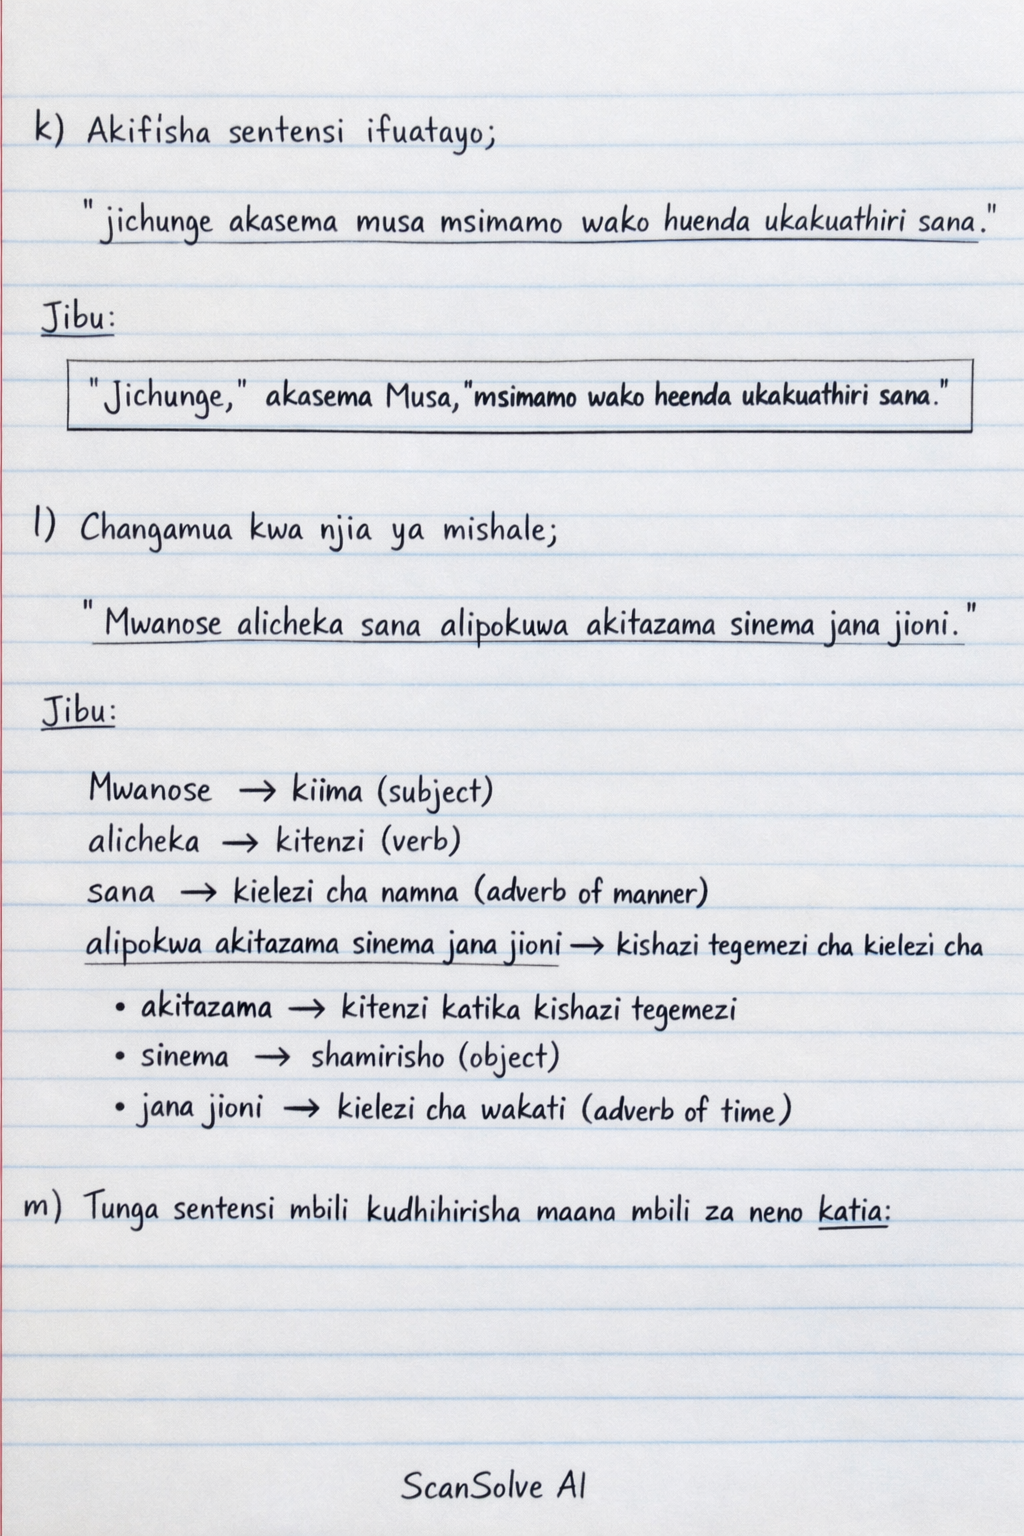 k) Akifisha sentensi ifuatayo;
"jichunge akasema musa msimamo wako huenda ukakuathiri sana."
Jibu:
"Jichunge," akasema Musa, "msimamo wako heenda ukakuathiri sana."
l) Changamua kwa njia ya mishale;
"Mwanose alicheka sana alipokuwa akitazama sinema jana jioni."
Jibu:
Mwanose → kiima (subject)
alicheka → kitenzi (verb)
sana → kielezi cha namna (adverb of manner)
alipokwa akitazama sinema jana jioni → kishazi tegemezi cha kielezi cha
• akitazama → kitenzi katika kishazi tegemezi
• sinema → shamirisho (object)
• jana jioni → kielezi cha wakati (adverb of time)
m) Tunga sentensi mbili kudhihirisha maana mbili za neno katia:
ScanSolve AI